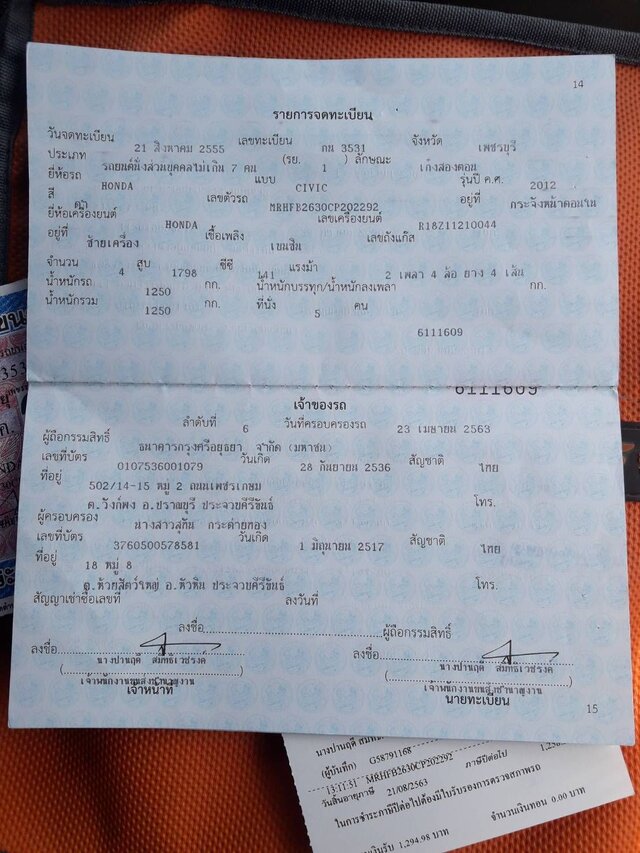 14
รายการจดทะเบียน
วันจดทะเบียน 21 สิงหาคม 2555 เลขทะเบียน กน 3531 จังหวัด เพชรบุรี
ประเภท รถยนต์นั่งส่วนบุคคลไม่เกิน 7 คน (รย. 1 ) ลักษณะ เก๋งสองตอน
ยี่ห้อรถ HONDA แบบ CIVIC รุ่นปี ค.ศ. 2012
สี ดำ เลขตัวรถ MRHFB2630CP202292 อยู่ที่ กระจังหน้าตอนใน
ยี่ห้อเครื่องยนต์ HONDA เลขเครื่องยนต์ R18Z11210044
อยู่ที่ ซ้ายเครื่อง เชื้อเพลิง เบนซิน เลขถังแก๊ส
จำนวน 4 สูบ 1798 ซีซี 141 แรงม้า 2 เพลา 4 ล้อ ยาง 4 เส้น
น้ำหนักรถ 1250 กก. น้ำหนักบรรทุก/น้ำหนักลงเพลา กก.
น้ำหนักรวม 1250 กก. ที่นั่ง 5 คน
6111609
6111609
เจ้าของรถ
ลำดับที่ 6 วันที่ครอบครองรถ 23 เมษายน 2563
ผู้ถือกรรมสิทธิ์ ธนาคารกรุงศรีอยุธยา จำกัด (มหาชน)
เลขที่บัตร 0107536001079 วันเกิด 28 กันยายน 2536 สัญชาติ ไทย
ที่อยู่ 502/14-15 หมู่ 2 ถนนเพชรเกษม
ต.วังก์พง อ.ปราณบุรี ประจวบคีรีขันธ์ โทร.
ผู้ครอบครอง นางสาวสุกัน กระต่ายทอง
เลขที่บัตร 3760500578581 วันเกิด 1 มิถุนายน 2517 สัญชาติ ไทย
ที่อยู่ 18 หมู่ 8
ต.ห้วยสัตว์ใหญ่ อ.หัวหิน ประจวบคีรีขันธ์ โทร.
สัญญาเช่าซื้อเลขที่ ลงวันที่
ลงชื่อ ผู้ถือกรรมสิทธิ์
ลงชื่อ ลงชื่อ
เจ้าหน้าที่ นายทะเบียน
15
(ผู้บันทึก) G58791168
13:11:31 MRHFB2630CP202292 ภาษีปีต่อไป
วันสิ้นอายุภาษี 21/08/2563
ในการชำระภาษีปีต่อไปต้องมีใบรับรองการตรวจสภาพรถ
เงินรับ 1,294.98 บาท จำนวนเงินทอน 0.00 บาท